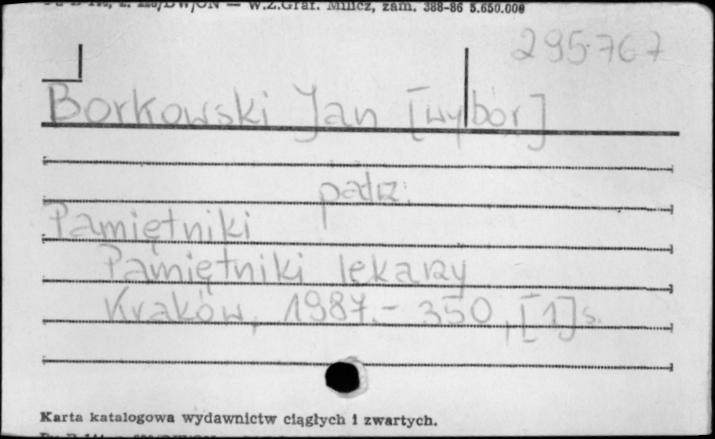 W.Z.Graf. Milicz, zam. 388-86 5.650.000
295767
Borkowski Jan [wybór]
patrz:
Pamiętniki
Pamiętniki lekarzy
Kraków, 1987.- 350, [1] s.
Karta katalogowa wydawnictw ciągłych i zwartych.